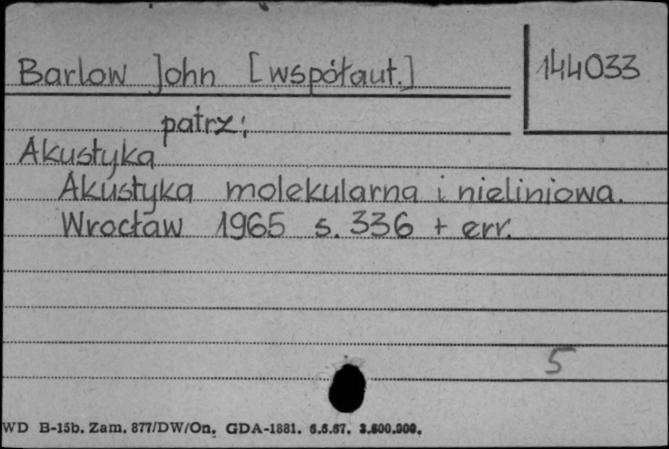 Barlow John [współaut.]
144033
patrz:
Akustyka
Akustyka molekularna i nieliniowa.
Wrocław 1965 s. 336 + err.
5
WD B-15b. Zam. 877/DW/On. GDA-1881. 6.5.67. 3.800.000.